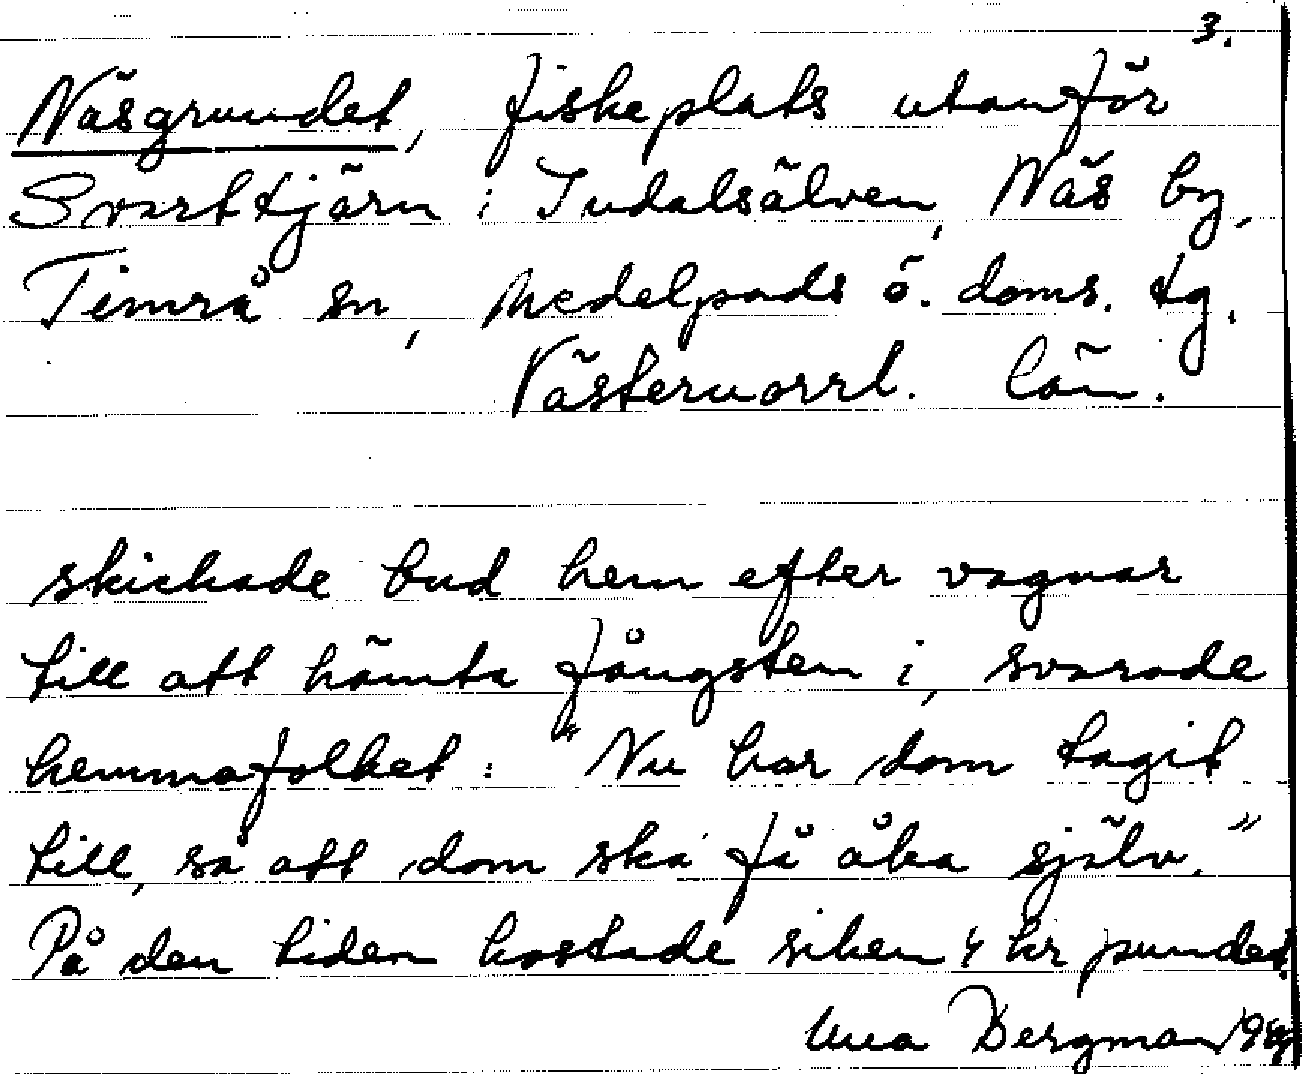 3.
Näsgrundet, fiskeplats utanför
Svarttjärn i Indalsälven, Näs by,
Timrå sn, Medelpads ö. doms. tg.
Västernorrl. län.
skickade bud hem efter vagnar
till att hämta fångsten i, svarade
hemmafolket: "Nu har dom tagit
till, så att dom ska få åka själv."
På den tiden kostade siken 4 kr pundet.
Bergman